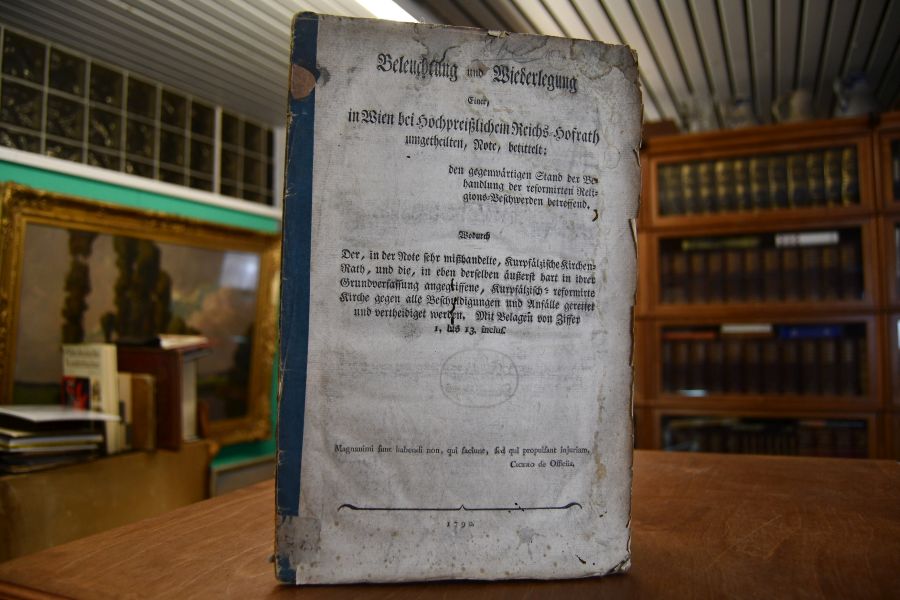 Beleuchtung und Wiederlegung
Einer,
in Wien bei Höchpreißlichem Reichs-Hofrath
umgetheilten, Note, betittelt:
den gegenwärtigen Stand der Be-
handlung der reformirten Reli-
gions-Beschwerden betreffend.
Wodurch
Der, in der Note sehr mißhandelte, Kurpfälzische Kirchen-
Rath, und die, in eben derselben äußerst hart in ihrer
Grundverfassung angegriffene, Kurpfälzisch-reformirte
Kirche gegen alle Beschuldigungen und Anfälle gerettet
und vertheidiget werden. Mit Beilagen von Ziffer
1. bis 13. inclus.
Magnanimi sunt habendi non, qui faciunt, sed qui propulsant injuriam.
CICERO de Officiis.